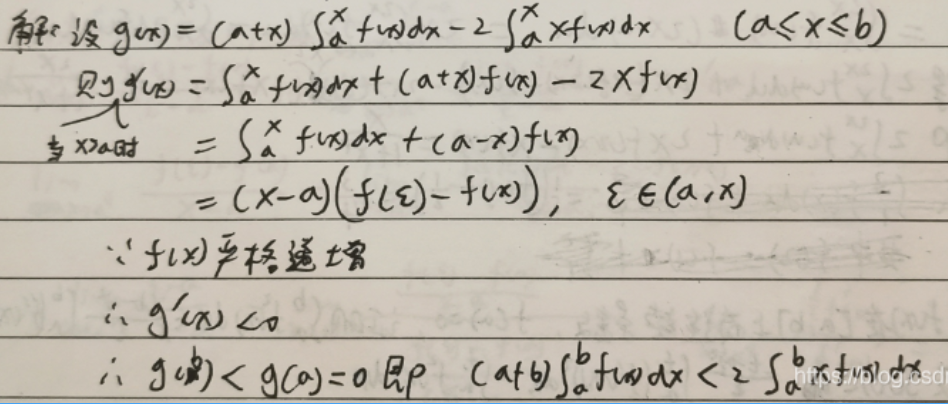 解: 设 g(x) = (a+x) ∫ₐˣ f(x)dx - 2 ∫ₐˣ xf(x)dx (a≤x≤b)
则 g'(x) = ∫ₐˣ f(x)dx + (a+x)f(x) - 2xf(x)
当 x>a时 = ∫ₐˣ f(x)dx + (a-x)f(x)
= (x-a)(f(ε)-f(x)), ε∈(a,x)
∵ f(x)严格递增
∴ g'(x)<0
∴ g(b)<g(a)=0 即 (a+b)∫ₐᵇ f(x)dx < 2 ∫ₐᵇ xf(x)dx
https://blog.csd